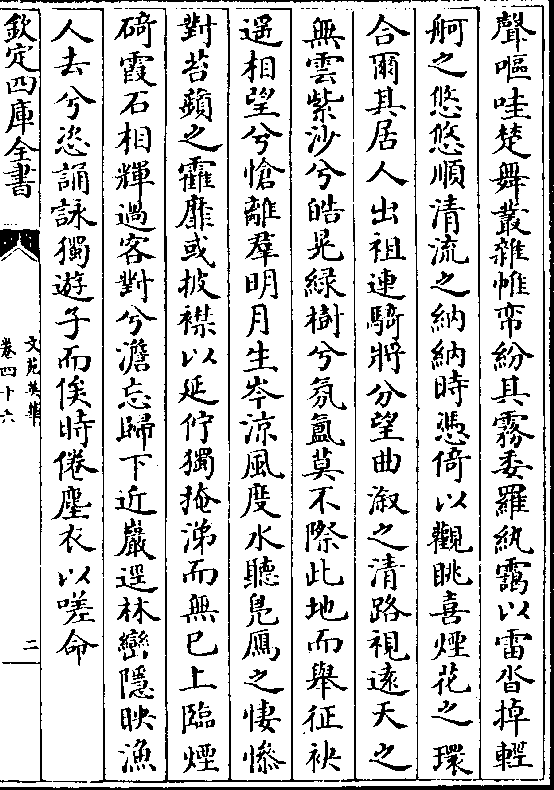 聲嘔哇楚舞叢雜帷帟紛其霧委羅紈靄以雷沓掉輕
舸之悠悠順清流之納納時憑倚以觀眺喜煙花之環
合爾其居人出祖連騎將分望曲溆之清路視遠天之
無雲紫沙兮皓晃綠樹兮氛氳莫不際此地而舉征袂
遥相望兮愴離羣明月生岑涼風度水聽鳧鴈之悽慘
對苔蘋之靃靡或披襟以延佇獨掩涕而無已上臨煙
碕霞石相輝過客對兮澹忘歸下近巖逕林巒隱映漁
人去兮恣誦詠獨遊子而俟時倦塵衣以嗟命
欽定四庫全書
文苑英華
卷四十六
二